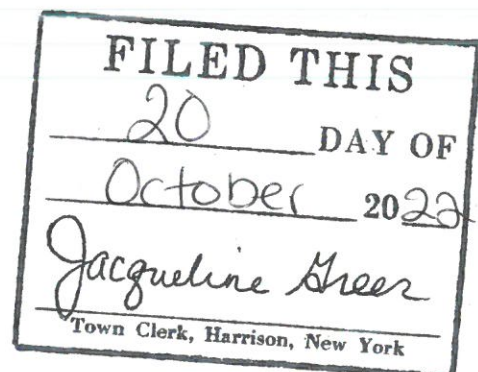 FILED THIS
20 DAY OF
October 2022
Jacqueline Greer
Town Clerk, Harrison, New York